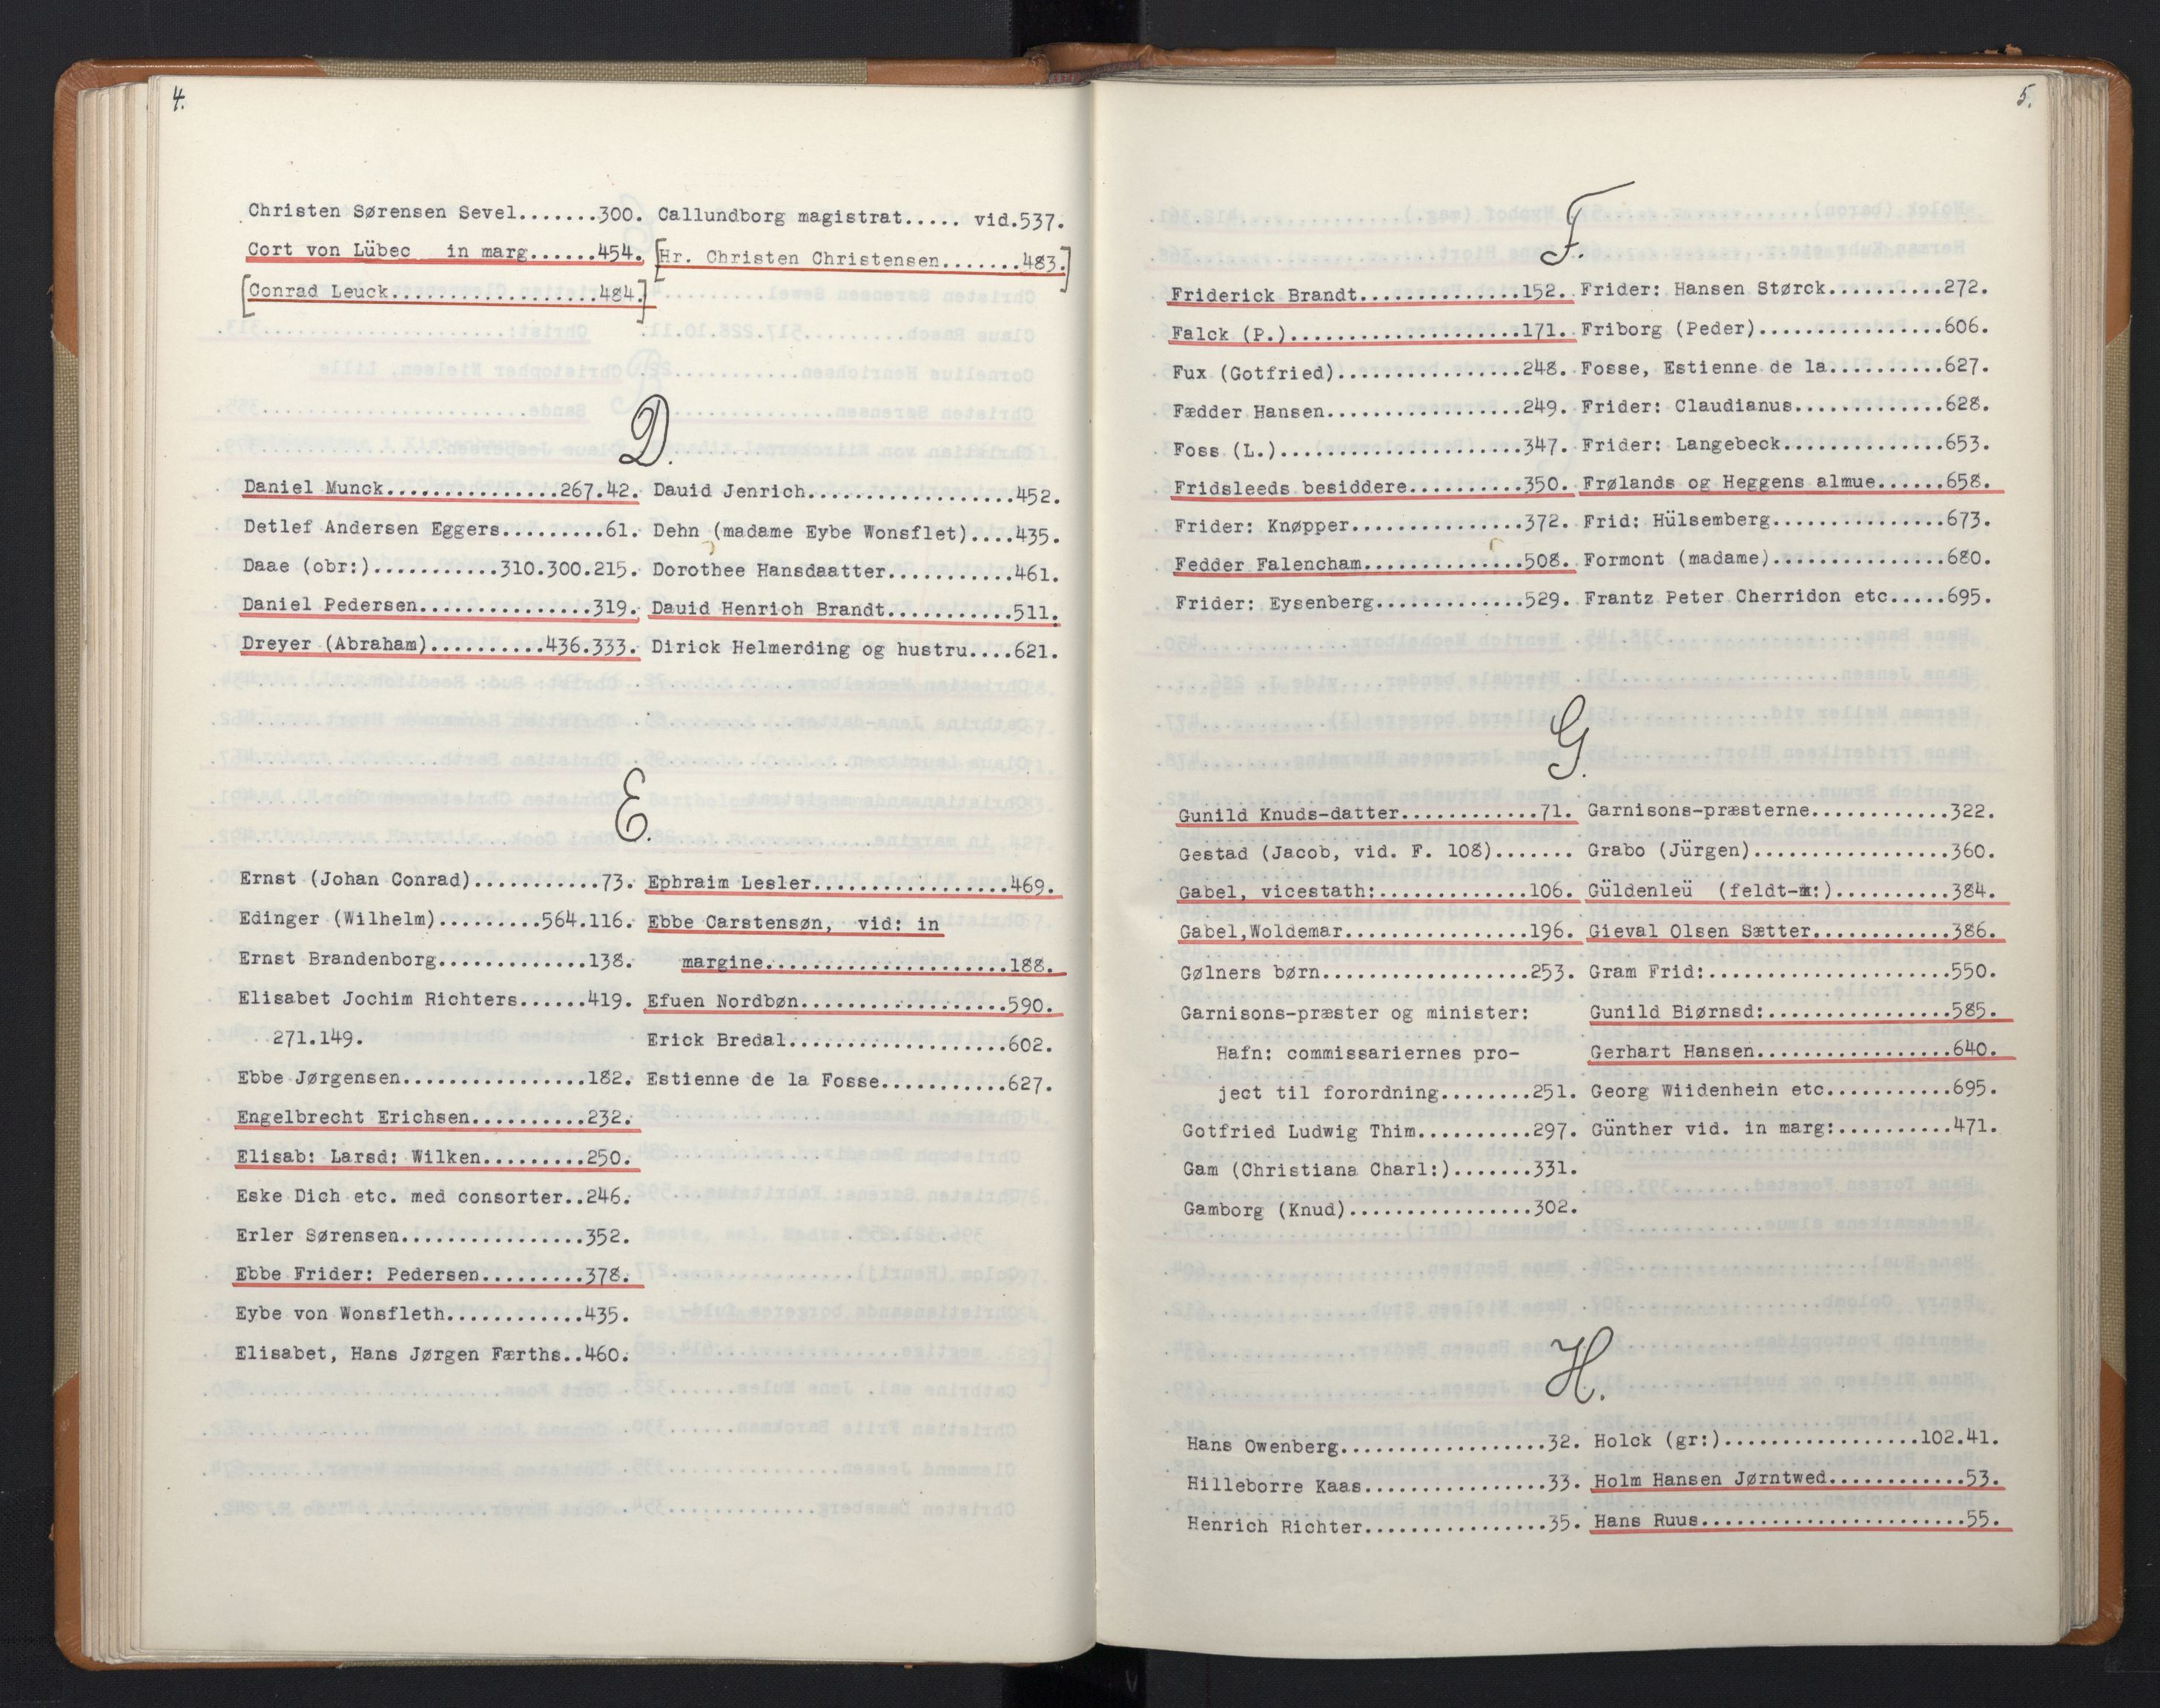 4.
Christen Sørensen Sevel.......300.
Cort von Lübec in marg......454.
[Conrad Leuck..................484.]
Callundborg magistrat..... vid.537.
[Hr. Christen Christensen.......483.]
D.
Daniel Munck...............267.42.
Detlef Andersen Eggers.........61.
Daae (obr:)...........310.300.215.
Daniel Pedersen...............319.
Dreyer (Abraham)..........436.333.
Dauid Jenrich..................452.
Dehn (madame Eybe Wonsflet)....435.
Dorothee Hansdaatter...........461.
Dauid Henrich Brandt...........511.
Dirick Helmerding og hustru....621.
E.
Ernst (Johan Conrad)...........73.
Edinger (Wilhelm).........564.116.
Ernst Brandenborg.............138.
Elisabet Jochim Richters......419.
271.149.
Ebbe Jørgensen................182.
Engelbrecht Erichsen..........232.
Elisab: Larsd: Wilken.........250.
Eske Dich etc. med consorter..246.
Erler Sørensen................352.
Ebbe Frider: Pedersen.........378.
Eybe von Wonsfleth............435.
Elisabet, Hans Jørgen Færths..460.
Ephraim Lesler.................469.
Ebbe Carstensøn, vid: in
margine.....................188.
Efuen Nordbøn..................590.
Erick Bredal...................602.
Estienne de la Fosse...........627.
5.
F.
Friderick Brandt..............152.
Falck (P.)....................171.
Fux (Gotfried)................248.
Fædder Hansen.................249.
Foss (L.).....................347.
Fridsleeds besiddere..........350.
Frider: Knøpper...............372.
Fedder Falencham..............508.
Frider: Eysenberg.............529.
Frider: Hansen Størck..........272.
Friborg (Peder)................606.
Fosse, Estienne de la..........627.
Frider: Claudianus.............628.
Frider: Langebeck..............653.
Frølands og Heggens almue......658.
Frid: Hülsemberg...............673.
Formont (madame)...............680.
Frantz Peter Cherridon etc.....695.
G.
Gunild Knuds-datter............71.
Gestad (Jacob, vid. F. 108).......
Gabel, vicestath:.............106.
Gabel,Woldemar................196.
Gølners børn..................253.
Garnisons-præster og minister:
Hafn: commissariernes pro-
ject til forordning........251.
Gotfried Ludwig Thim..........297.
Gam (Christiana Charl:).......331.
Gamborg (Knud)................302.
Garnisons-præsterne............322.
Grabo (Jürgen).................360.
Güldenleü (feldt-m:)..........384.
Gieval Olsen Sætter............386.
Gram Frid:.....................550.
Gunild Biørnsd:................585.
Gerhart Hansen.................640.
Georg Wiidenhein etc...........695.
Günther vid. in marg:..........471.
H.
Hans Owenberg..................32.
Hilleborre Kaas................33.
Henrich Richter................35.
Holck (gr:).................102.41.
Holm Hansen Jørntwed............53.
Hans Ruus.......................55.